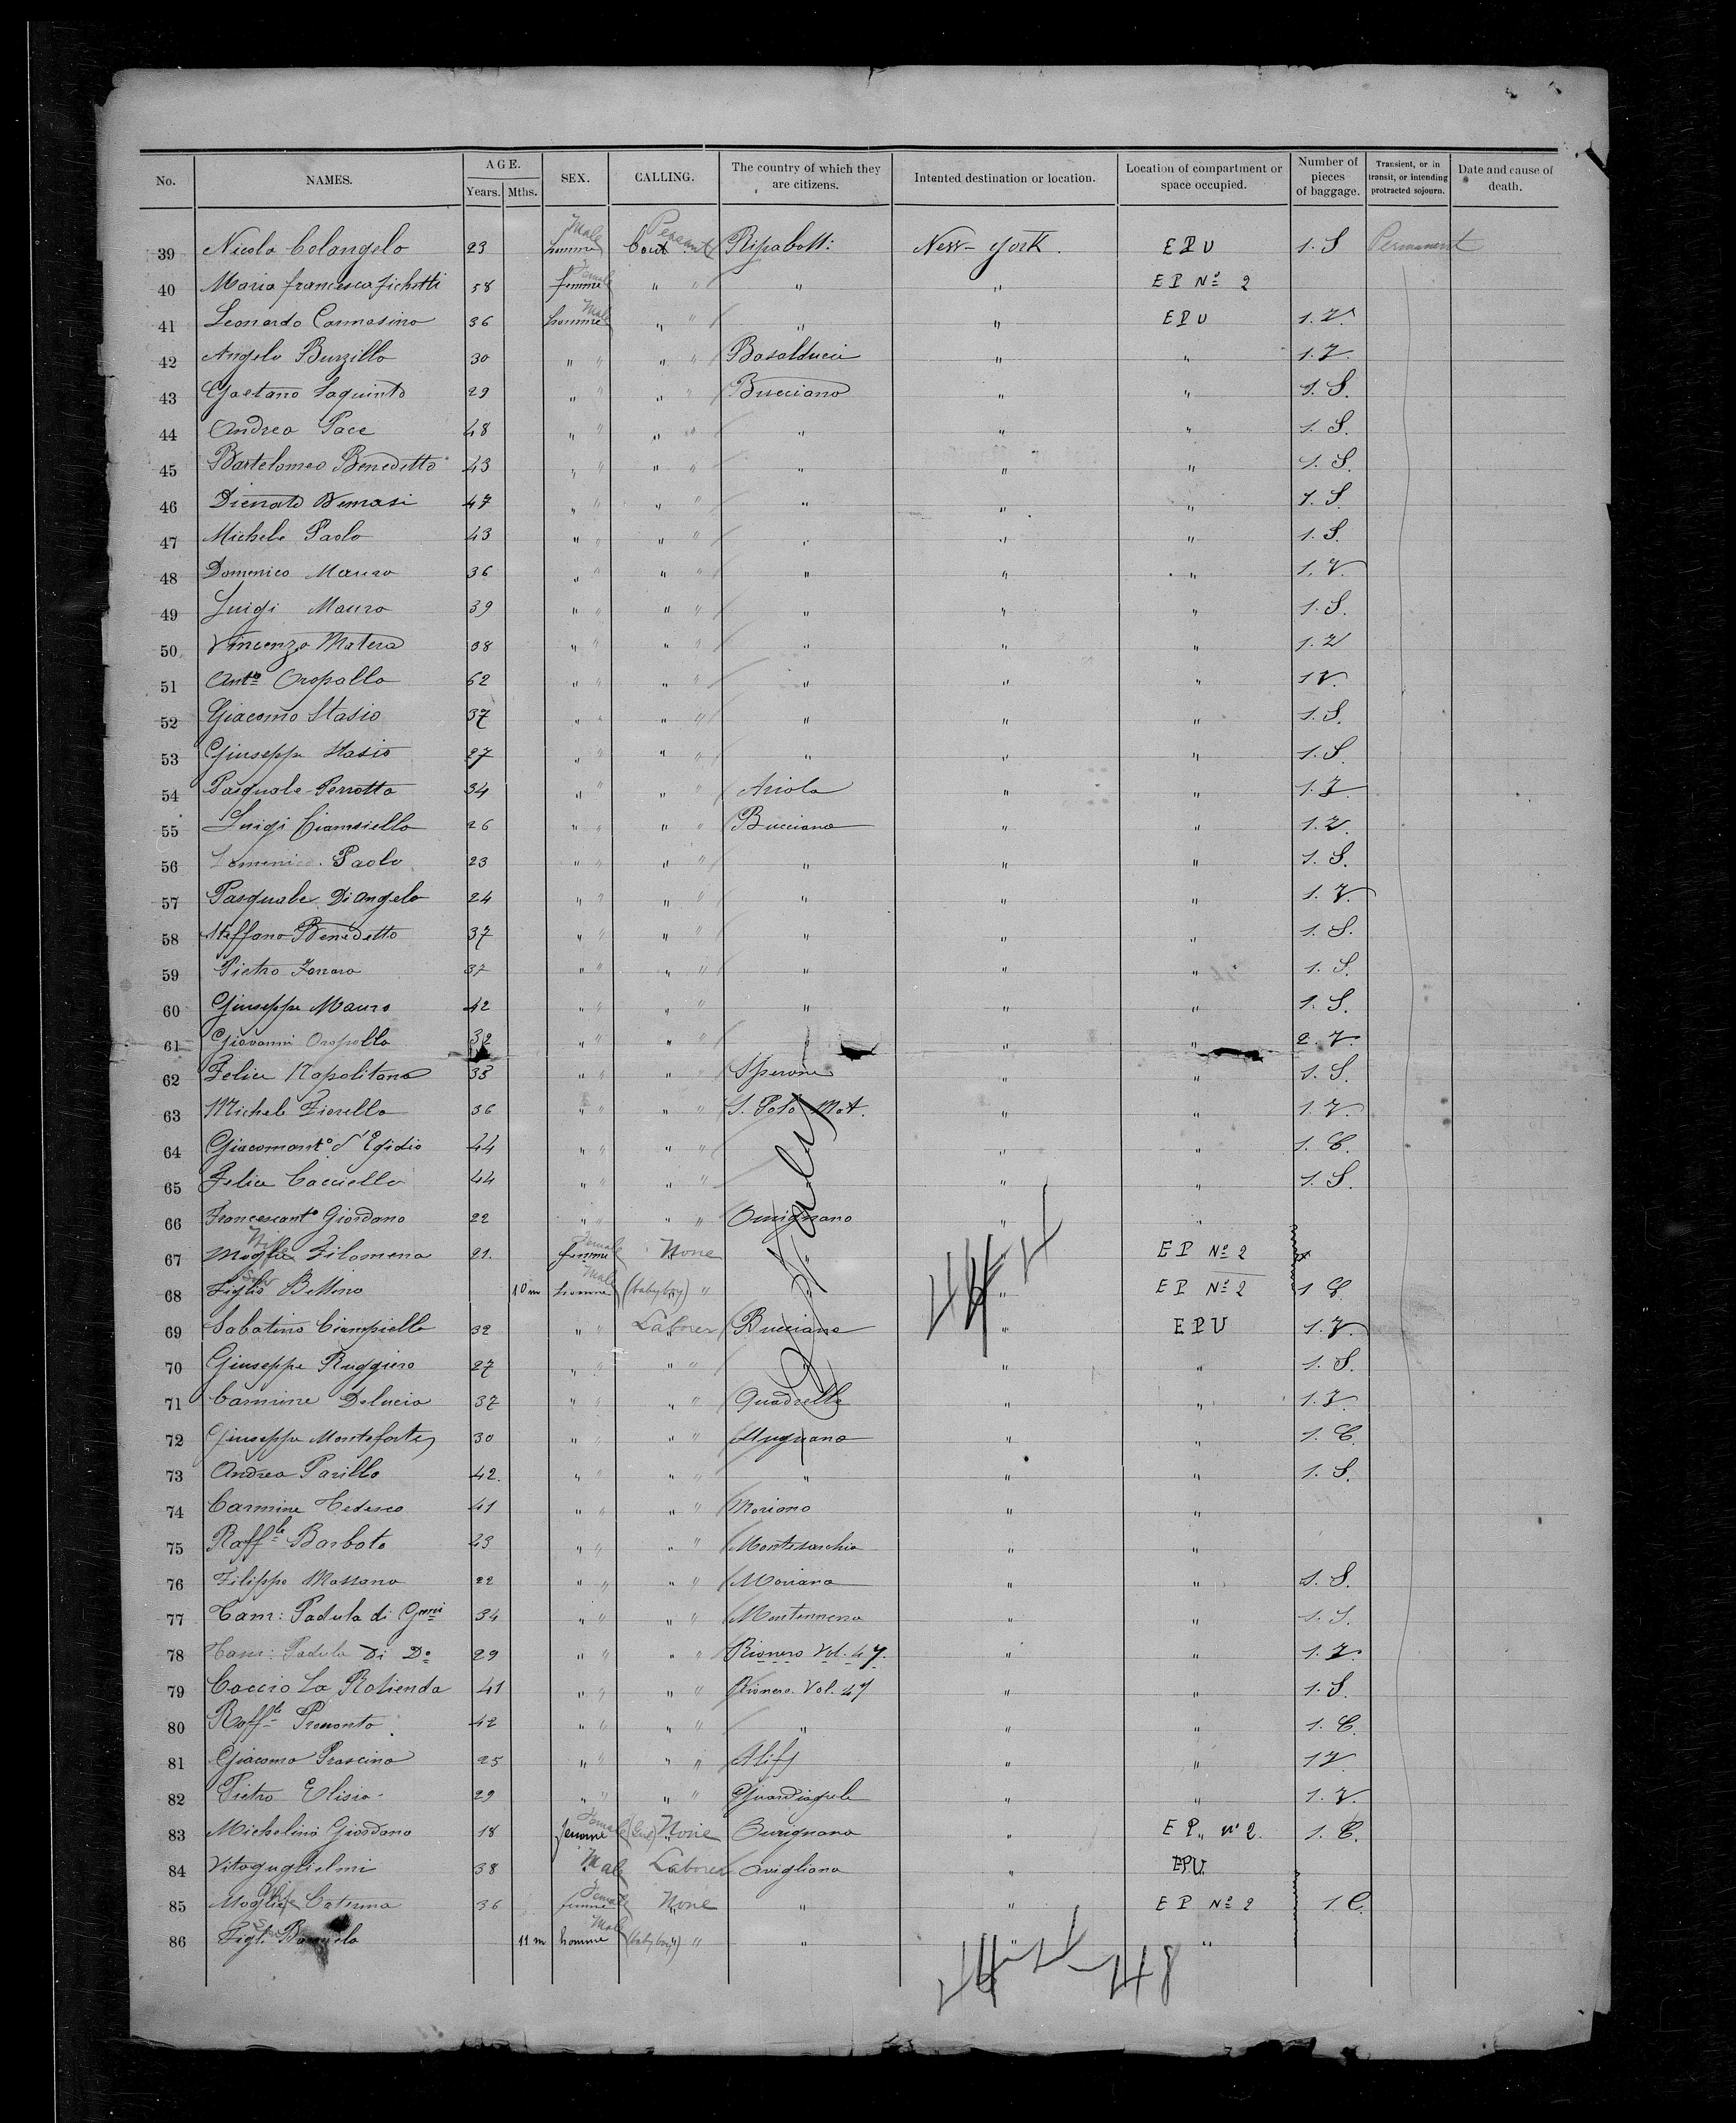 No. NAMES. AGE. Years. Mths. SEX. CALLING. The country of which they are citizens. Intented destination or location. Location of compartment or space occupied. Number of pieces of baggage. Transient, or in transit, or intending protracted sojourn. Date and cause of death.
39 Nicola Colangelo 23 homme Male Peasant Ripabott: New-York. E P U 1. S Permanent
40 Maria francesca fichetti 58 femme Female " " " " E P Nº 2
41 Leonardo Cannasino 36 homme Male " " " " E P U 1. V.
42 Angelo Burzillo 30 " " " " Basalducci " " 1. V.
43 Gaetano Iaquinto 29 " " " " Bucciano " " 1. S.
44 Andrea Pace 48 " " " " " " " 1. S.
45 Bartolomeo Benedetto 43 " " " " " " " 1. S.
46 Dionato Demasi 47 " " " " " " " 1. S.
47 Michele Paolo 43 " " " " " " " 1. S.
48 Domenico Mauro 36 " " " " " " " 1. V.
49 Luigi Mauro 39 " " " " " " " 1. S.
50 Vincenzo Matera 38 " " " " " " " 1. V
51 Antº Oropallo 62 " " " " " " " 1 V.
52 Giacomo Stasio 37 " " " " " " " 1. S.
53 Giuseppe Stasio 27 " " " " " " " 1. S.
54 Pasquale Perrotta 34 " " " " Ariola " " 1. V.
55 Luigi Ciampiello 26 " " " " Bucciano " " 1. V.
56 Domenico Paolo 23 " " " " " " " 1. S.
57 Pasquale DiAngelo 24 " " " " " " " 1. V.
58 Steffano Benedetto 37 " " " " " " " 1. S.
59 Pietro 37 " " " " " " " 1. S.
60 Giuseppe Mauro 42 " " " " " " " 1. S.
61 Giovanni Oropallo 32 " " " " " " 2. V.
62 Felice Napolitano 33 " " " " Sperone " " 1. S.
63 Michele Fiorella 36 " " " " S. Polo Mat. " " 1. V.
64 Giacomantº d'Egidio 44 " " " " " " 1. C.
65 Felice Cacciello 44 " " " " " " 1. S.
66 Francescantº Giordano 22 " " " " " "
67 Moglie Wife Filomena 21. femme Female None " E P Nº 2
68 Figlio Son Bettino 10 m homme Male (baby boy) " " E P Nº 2 1 C.
69 Sabatino Ciampiello 32 " " Laborer Bucciano " E P U 1. V.
70 Giuseppe Ruggiero 27 " " " " " " " 1. S.
71 Carmine Delucia 37 " " " " Quadrelle " " 1. V.
72 Giuseppe Monteforte 30 " " " " Mugnano " " 1. C.
73 Andrea Parillo 42. " " " " " " " 1. S.
74 Carmine Tedesco 41 " " " " Moriano " "
75 Raffle Barbato 23 " " " " Montesarchio " "
76 Filippo Massaro 22 " " " " Moriano " " 1. S.
77 Cam: Padula di Gnni 34 " " " " " " 1. S.
78 Cam: Padula Di Dº 29 " " " " Rionero Vol. 47. " " 1. V.
79 La Rotienda 41 " " " " Rionero. Vol. 47 " " 1. S.
80 Raffle 42 " " " " " " " 1. C.
81 Giacomo 25 " " " " Alif " " 1 V.
82 Pietro Elisio 29 " " " " " " 1. V.
83 Michelina Giordano 18 femme Female None " E P " Nº 2. 1. C.
84 Vitoguglielmi 38 Male Laborer Avigliano " EPU.
85 Moglie Wife Caterina 36 femme Female None " " E P Nº 2 1 C.
86 Figl. Son 11 m homme Male (baby boy) " " " "
Italy